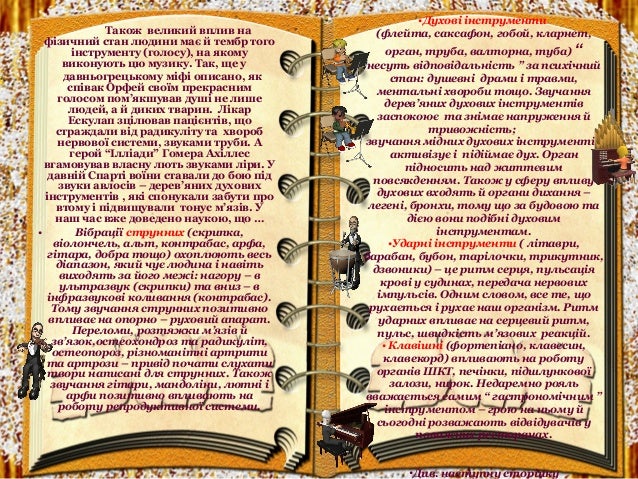 Також великий вплив на
фізичний стан людини має й тембр того
інструменту (голосу), на якому
виконують цю музику. Так, ще у
давньогрецькому міфі описано, як
співак Орфей своїм прекрасним
голосом пом’якшував душі не лише
людей, а й диких тварин. Лікар
Ескулап зцілював пацієнтів, що
страждали від радикуліту та хвороб
нервової системи, звуками труби. А
герой “Ілліади” Гомера Ахіллес
вгамовував власну лють звуками ліри. У
давній Спарті воїни ставали до бою під
звуки авлосів – дерев’яних духових
інструментів , які спонукали забути про
втому і підвищували тонус м’язів. У
наш час вже доведено наукою, що …
• Вібрації струнних (скрипка,
віолончель, альт, контрабас, арфа,
гітара, добра тощо) охоплюють весь
діапазон, який чує людина і навіть
виходять за його межі: нагору – в
ультразвук (скрипки) та вниз – в
інфразвукові коливання (контрабас).
Тому звучання струнних позитивно
впливає на опорно – руховий апарат.
Переломи, розтяжки м’язів й
зв’язок,остеохондроз та радикуліт,
остеопороз, різноманітні артрити
та артрози – привід почати слухати
твори написані для струнних. Також
звучання гітари, мандоліни, лютні і
арфи позитивно впливають на
роботу репродуктивної системи.
•Духові інструменти
(флейта, саксафон, гобой, кларнет,
орган, труба, валторна, туба) “
несуть відповідальність ” за психічний
стан: душевні драми і травми,
ментальні хвороби тощо. Звучання
дерев’яних духових інструментів
заспокоює та знімає напруження й
тривожність;
звучання мідних духових інструментів
активізує і підіймає дух. Орган
підносить над життєвим
повсякденням. Також у сферу впливу
духових входять й органи дихання –
легені, бронхи, тому що за будовою та
дією вони подібні духовим
інструментам.
•Ударні інструменти ( літаври,
барабан, бубон, тарілочки, трикутник,
дзвоники) – це ритм серця, пульсація
крові у судинах, передача нервових
імпульсів. Одним словом, все те, що
рухається і рухає наш організм. Ритм
ударних впливає на серцевий ритм,
пульс, швидкість м’язових реакцій.
•Клавішні (фортепіано, клавесин,
клавекорд) впливають на роботу
органів ШКТ, печінки, підшлункової
залози, нирок. Недаремно рояль
вважається самим “ гастрономічним ”
інструментом – грою на ньому й
сьогодні розважають відвідувачів у
ресторанах.
•Див. наступну сторінку